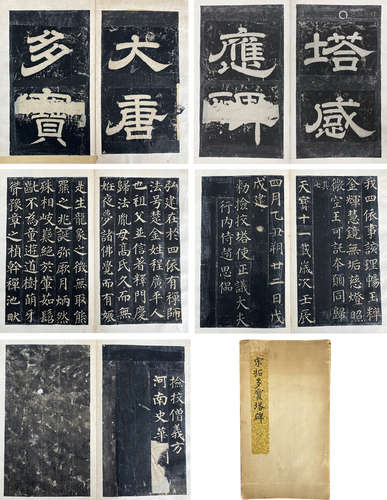 大唐
多寶
塔感
應碑
弘建在於四依有禪師
法号楚金姓程廣平人
也祖父並信著釋門慶
歸法胤母高氏久而無
姙夜夢諸佛覺而有娠
是生龍象之徵無取熊
羆之兆誕弥厥月炳然
殊相岐嶷絕於葷茹齠
齔不為童遊道樹萌牙
聳豫章之楨幹禪池畎
我四依事該理暢玉粹
金輝慧鏡無垢慈燈照
微空王可託本願同歸
其七
天寶十一載歲次壬辰
四月乙丑朔廿二日戊
戌建
勑檢校塔使正議大夫
行內侍趙思偘
檢校僧義方
河南史華
宋拓多寶塔碑